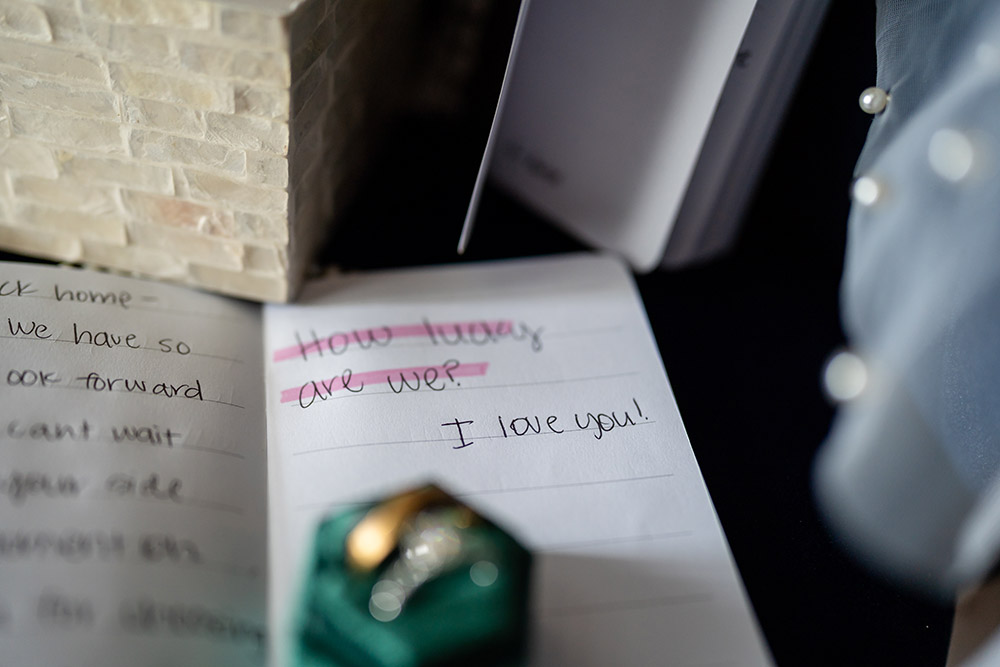 ck home-
we have so
ook forward
cant wait
your side
How lucky
are we?
I love you!